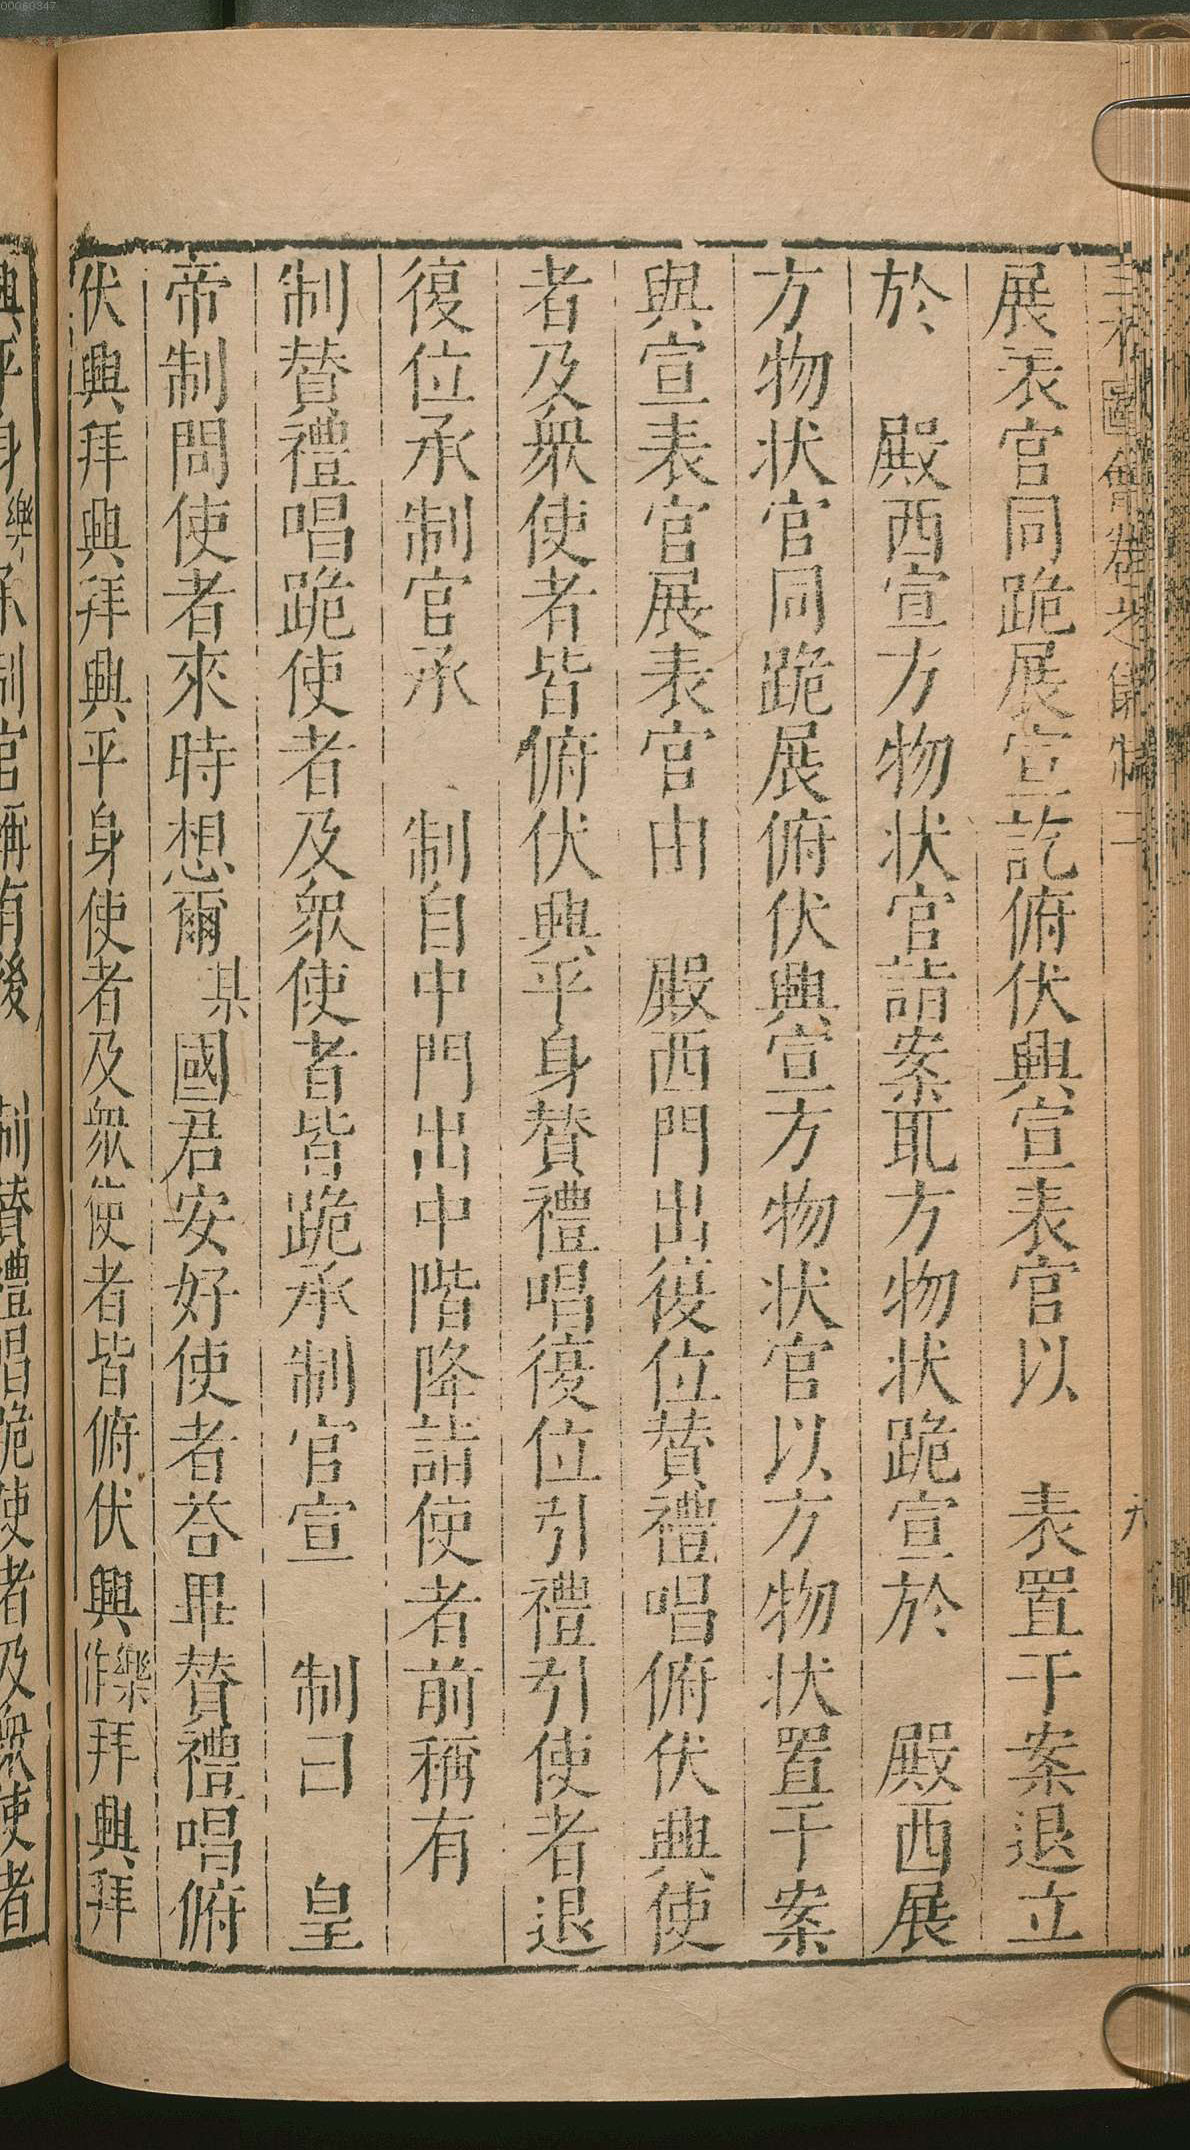 00060347
圖會卷之儀制二
九
展表官同跪展宣訖俯伏興宣表官以　表置于案退立
於　殿西宣方物状官詣案取方物状跪宣於　殿西展
方物状官同跪展俯伏興宣方物状官以方物状置于案
與宣表官展表官由　殿西門出復位賛禮唱俯伏興使
者及衆使者皆俯伏興平身賛禮唱復位引禮引使者退
復位承制官承　制自中門出中階降詣使者前稱有
制賛禮唱跪使者及衆使者皆跪承制官宣　制曰　皇
帝制問使者來時想爾某國君安好使者荅畢賛禮唱俯
伏興拜興拜興平身使者及衆使者皆俯伏興樂作拜興拜
興平身樂承制官稱有後　制賛禮唱跪使者及衆使者